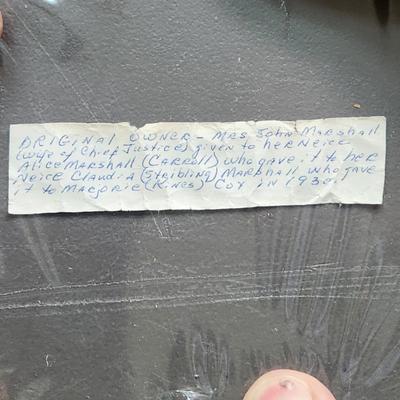 ORIGINAL OWNER - MRS JOHN MARSHALL
(wife of Chief Justice) given to her Neice
Alice Marshall (Carroll) who gave it to her
Neice Claudia (Stribling) Marshall who gave
it to Marjorie (Kines) Coy in 1930.